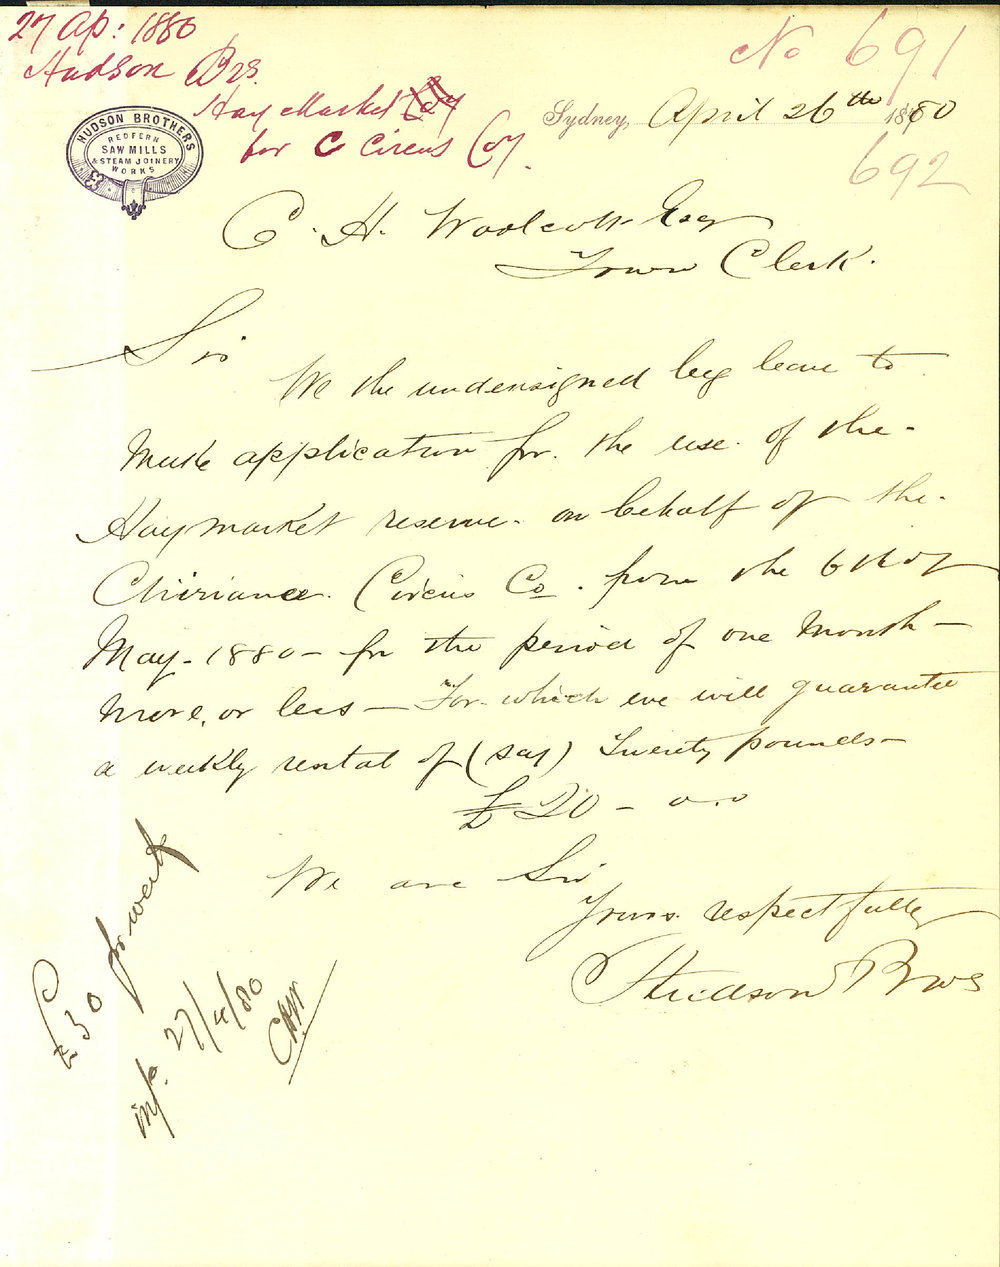 27 Ap: 1880
Hudson Bros.
Hay Market
for C Circus Coy.
No 691
692
HUDSON BROTHERS
REDFERN
SAW MILLS
& STEAM JOINERY
WORKS
Sydney, April 26th 1880
C. H. Woolcott Esq
Town Clerk.
Sir
We the undersigned beg leave to
Make application for the use of the
Haymarket reserve on behalf of the
Circus Co. from the 6th of
May - 1880 - for the period of one Month -
More, or less - For which we will guarantee
a weekly rental of (say) Twenty pounds -
£20 - 0.0
We are Sir
Yours respectfully
Hudson Bros
£30 per week
inf. 27/4/80
CHW